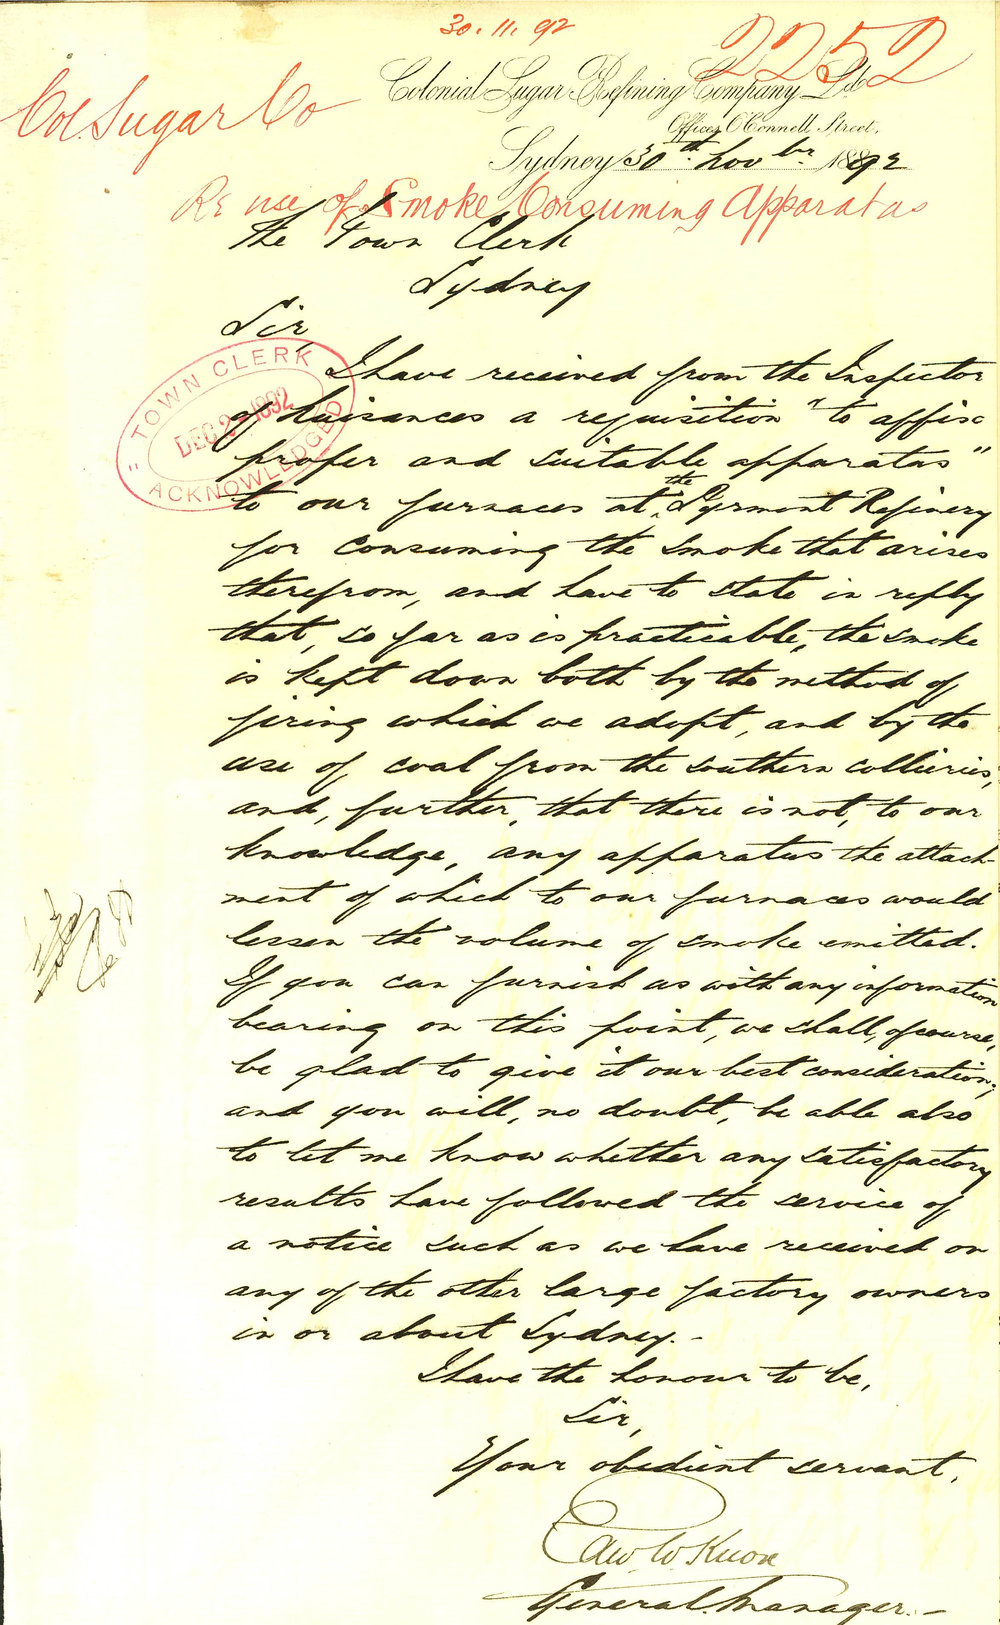 30.11.92
2252
Col. Sugar Co
Colonial Sugar Refining Company Ld
Offices O'Connell Street.
Sydney 30th Novbr 1892
Re use of Smoke Consuming Apparatus
The Town Clerk
Sydney
Sir,
TOWN CLERK
DEC 2 1892
ACKNOWLEDGED
I have received from the Inspector
of Nuisances a requisition "to affix
proper and suitable apparatus"
to our furnaces at the Pyrmont Refinery
for consuming the smoke that arises
therefrom, and have to state in reply
that, so far as is practicable, the smoke
is kept down both by the method of
firing which we adopt, and by the
use of coal from the southern collieries,
and, further, that there is not, to our
knowledge, any apparatus the attach-
ment of which to our furnaces would
lessen the volume of smoke emitted.
If you can furnish us with any information
bearing on this point, we shall, of course,
be glad to give it our best consideration;
and you will, no doubt, be able also
to let me know whether any satisfactory
results have followed the service of
a notice such as we have received on
any of the other large factory owners
in or about Sydney.-
I have the honour to be,
Sir,
Your obedient servant,
Edw W Knox
General Manager.-